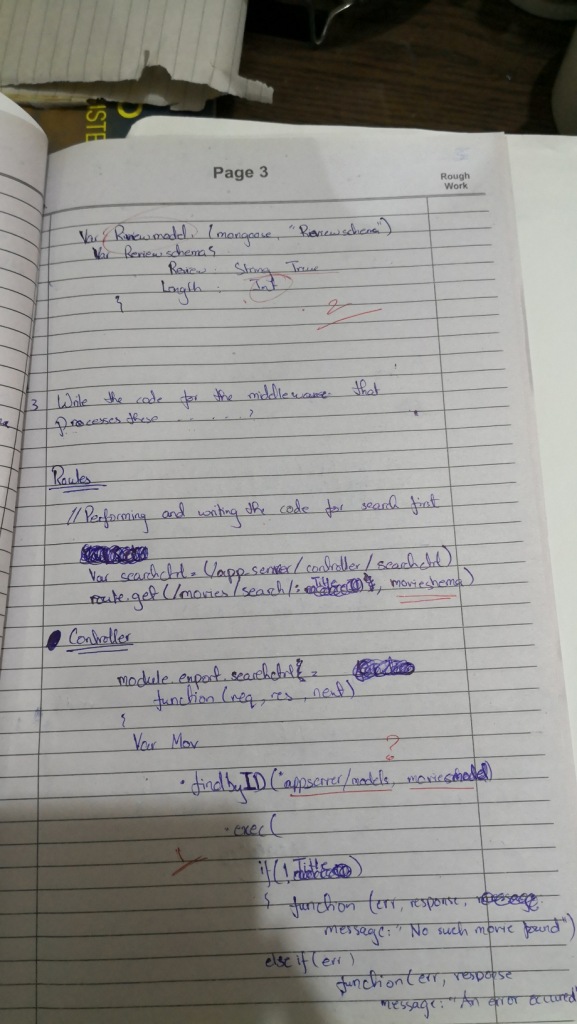 ISTE
Page 3
Rough
Work
Var Reviewmodel (mongoose, "Reviewschema")
Var Reviewschema {
Review : String True
Length : Int
}
2
3 Write the code for the middleware that
processes these ........?
Routes
// Performing and writing the code for search first
Var searchctrl = (/app server/controller/searchctrl)
route.get (/movies/search/: Title , movieshema)
Controller
module.export.searchctrl =
function (req, res, next)
{
Var Mov
?
.findbyID ("appserver/models, moviesmodel)
.exec(
1
if (! Title)
{ function (err, response,
message: "No such movie found")
else if (err)
function (err, response
message: "An error occured"